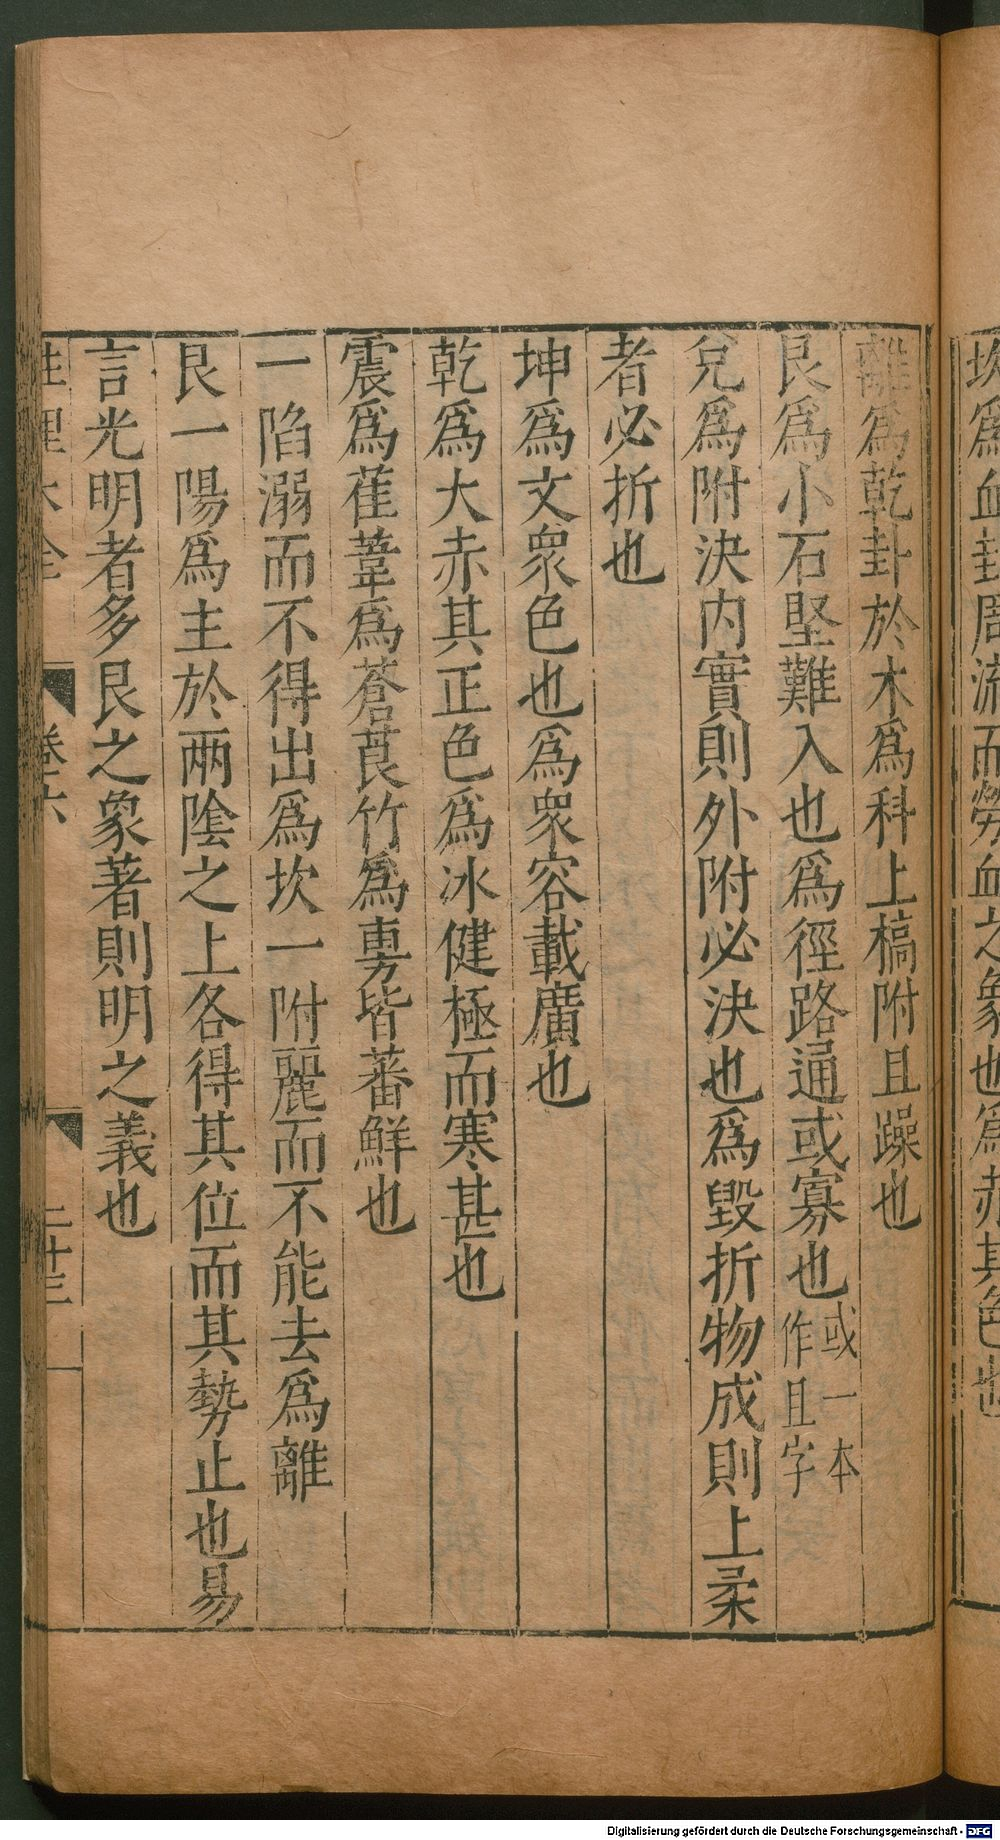 坎爲血卦周流而勞血之象也爲赤其色也
離爲乾卦於木爲科上槁附且躁也
艮爲小石堅難入也爲徑路通或寡也或一本作且字
兌爲附決内實則外附必決也爲毀折物成則上柔
者必折也
坤爲文衆色也爲衆容載廣也
乾爲大赤其正色爲冰健極而寒甚也
震爲萑葦爲蒼莨竹爲旉皆蕃鮮也
一陷溺而不得出爲坎一附麗而不能去爲離
艮一陽爲主於兩陰之上各得其位而其勢止也易
言光明者多艮之象著則明之義也
性理大全 卷六 二十三
Digitalisierung gefördert durch die Deutsche Forschungsgemeinschaft - DFG